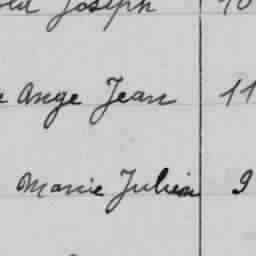 Joseph
Ange Jean 11
Marie Julien 9